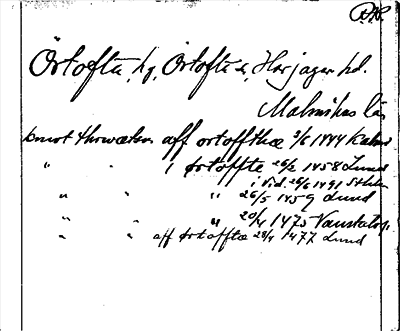 Örtofta, hg, Örtofta s, Harjagers hd.
Malmöhus län
knut throwætsen aff ortoffthæ 3/6 1444 Kalmar
" " i ørtoffte 26/2 1458 Lund
i Vid. 26/6 1491 Sthlm
" " " 26/5 1459 Lund
" " " 20/4 1475 Vanstalorp
" " aff ørtofftæ 28/4 1477 Lund